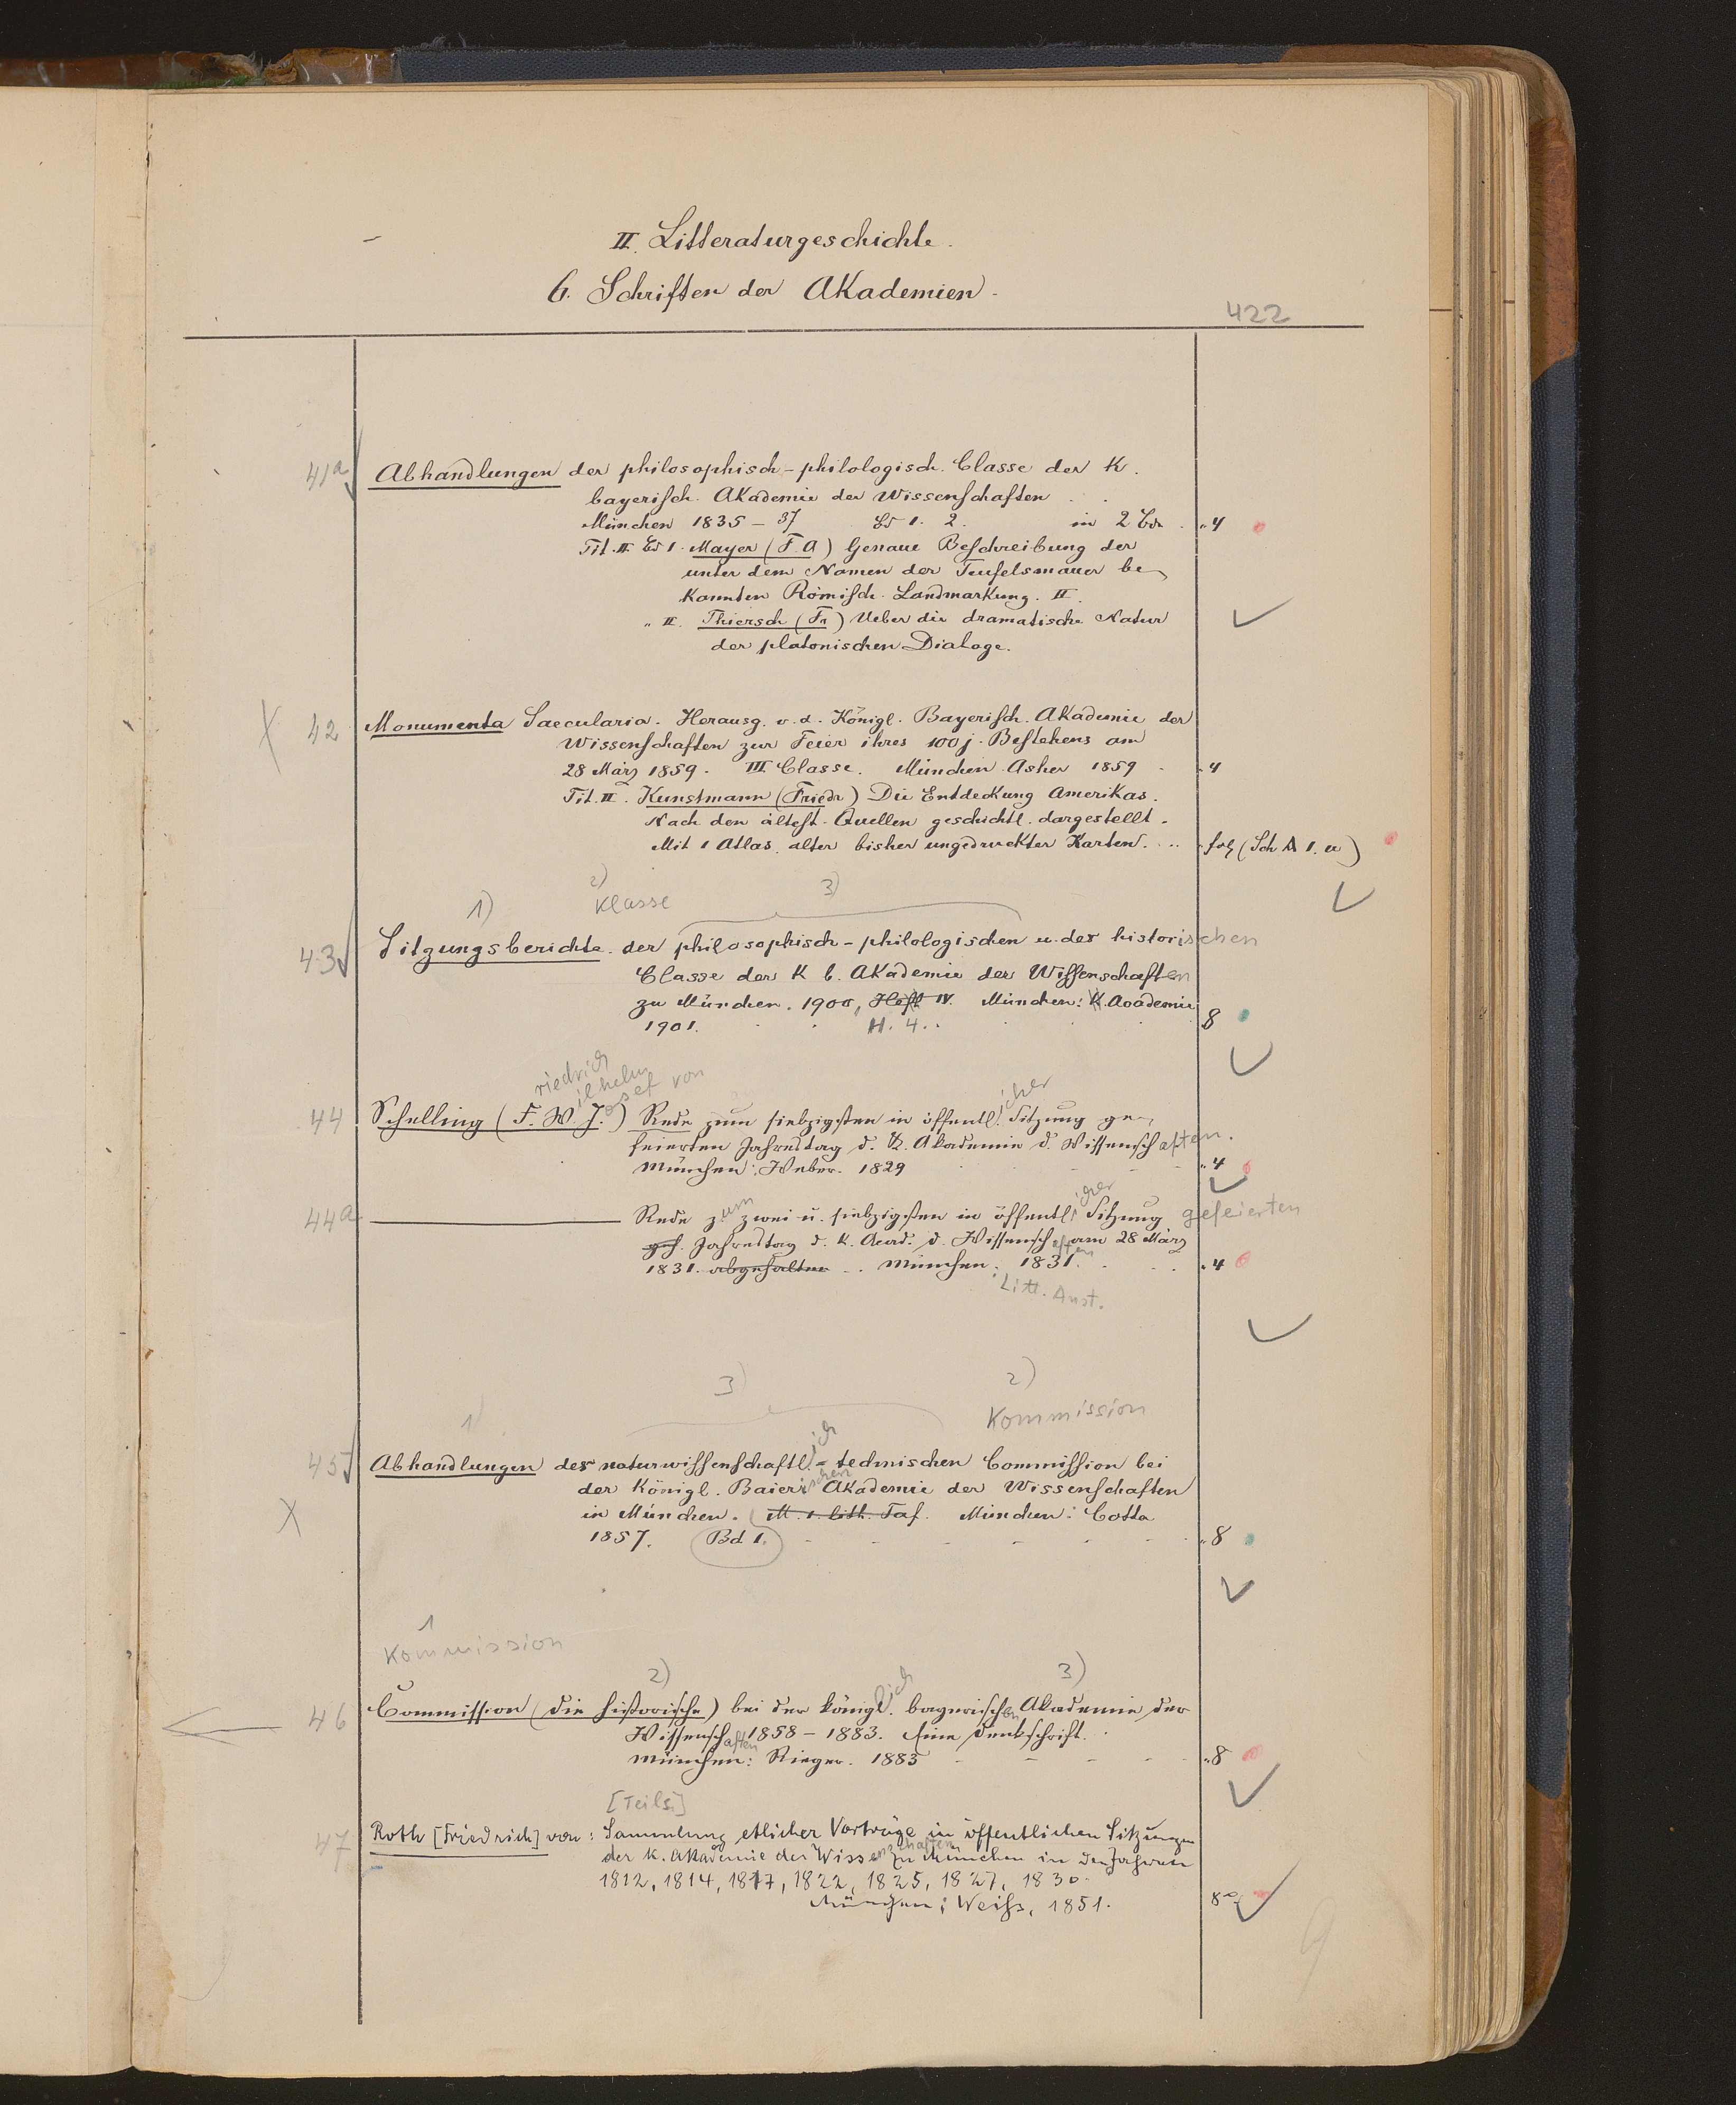 II. Litteraturgeschichte.
6. Schriften der Akademien.
422
41a Abhandlungen der philosophisch-philologisch. Classe der K.
bayerisch. Akademie der Wissenschaften
München 1835 - 37 Bd 1. 2. in 2 Bdn. "4
Tit. II Bd 1. Mayer (F. A) Genaue Beschreibung der
unter dem Namen der Teufelsmauer be-
kannten Römisch. Landmarkung. II.
" II. Thiersch (Fr) Ueber die dramatische Natur
der platonischen Dialoge.
X 42 Monumenta Saecularia. Herausg. v. d. Königl. Bayerisch. Akademie der
Wissenschaften zur Feier ihres 100 j. Bestehens am
28 März 1859. III Classe. München. Asher 1859 "4
Tit. II. Kunstmann (Friedr) Die Entdeckung Amerikas.
Nach den ältest. Quellen geschichtl. dargestellt.
Mit 1 Atlas alter bisher ungedruckter Karten. fol (Sch A 1. a)
1) 2) Klasse 3)
43 Sitzungsberichte der philosophisch-philologischen u. der historischen
Classe der K b. Akademie der Wissenschaften
zu München. 1900, Heft IV. München: K. Acade­mie
1901. H. 4. 8
riedrich ilhelm osef von icher
44 Schelling (F. W. J.) Rede zum siebzigsten in öffentl. Sitzung ge-
feierten Jahrestag d. K. Akademie d. Wissenschaften.
München: Weber. 1829 "4
icher
44a Rede zum zwei u. siebzigsten in öffentl. Sitzung gefeierten
gef. Jahrestag d. K. Acad. d. Wissenschaften am 28 März
1831. abgehalten München. 1831. "4
: Litt. Anst.
1) 3) 2)
Kommission
45 Abhandlungen der naturwissenschaftlich-technischen Commission bei
der Königl. Baierischen Akademie der Wissenschaften
X in München. M. 1. lith. Taf. München: Cotta
1857. Bd 1. "8
1
Kommission
2) 3)
46 Commission (die historische) bei der königlich. bayerischen Akademie der
Wissenschaften 1858 - 1883. Eine Denkschrift.
München: Rieger. 1883 "8
[Teils.]
47 Roth [Friedrich] von: Sammlung etlicher Vorträge in öffentlichen Sitzungen
der K. Akademie der Wissenschaften zu München in den Jahren
1812, 1814, 1817, 1822, 1825, 1827, 1830.
München: Weiß, 1851. 8°